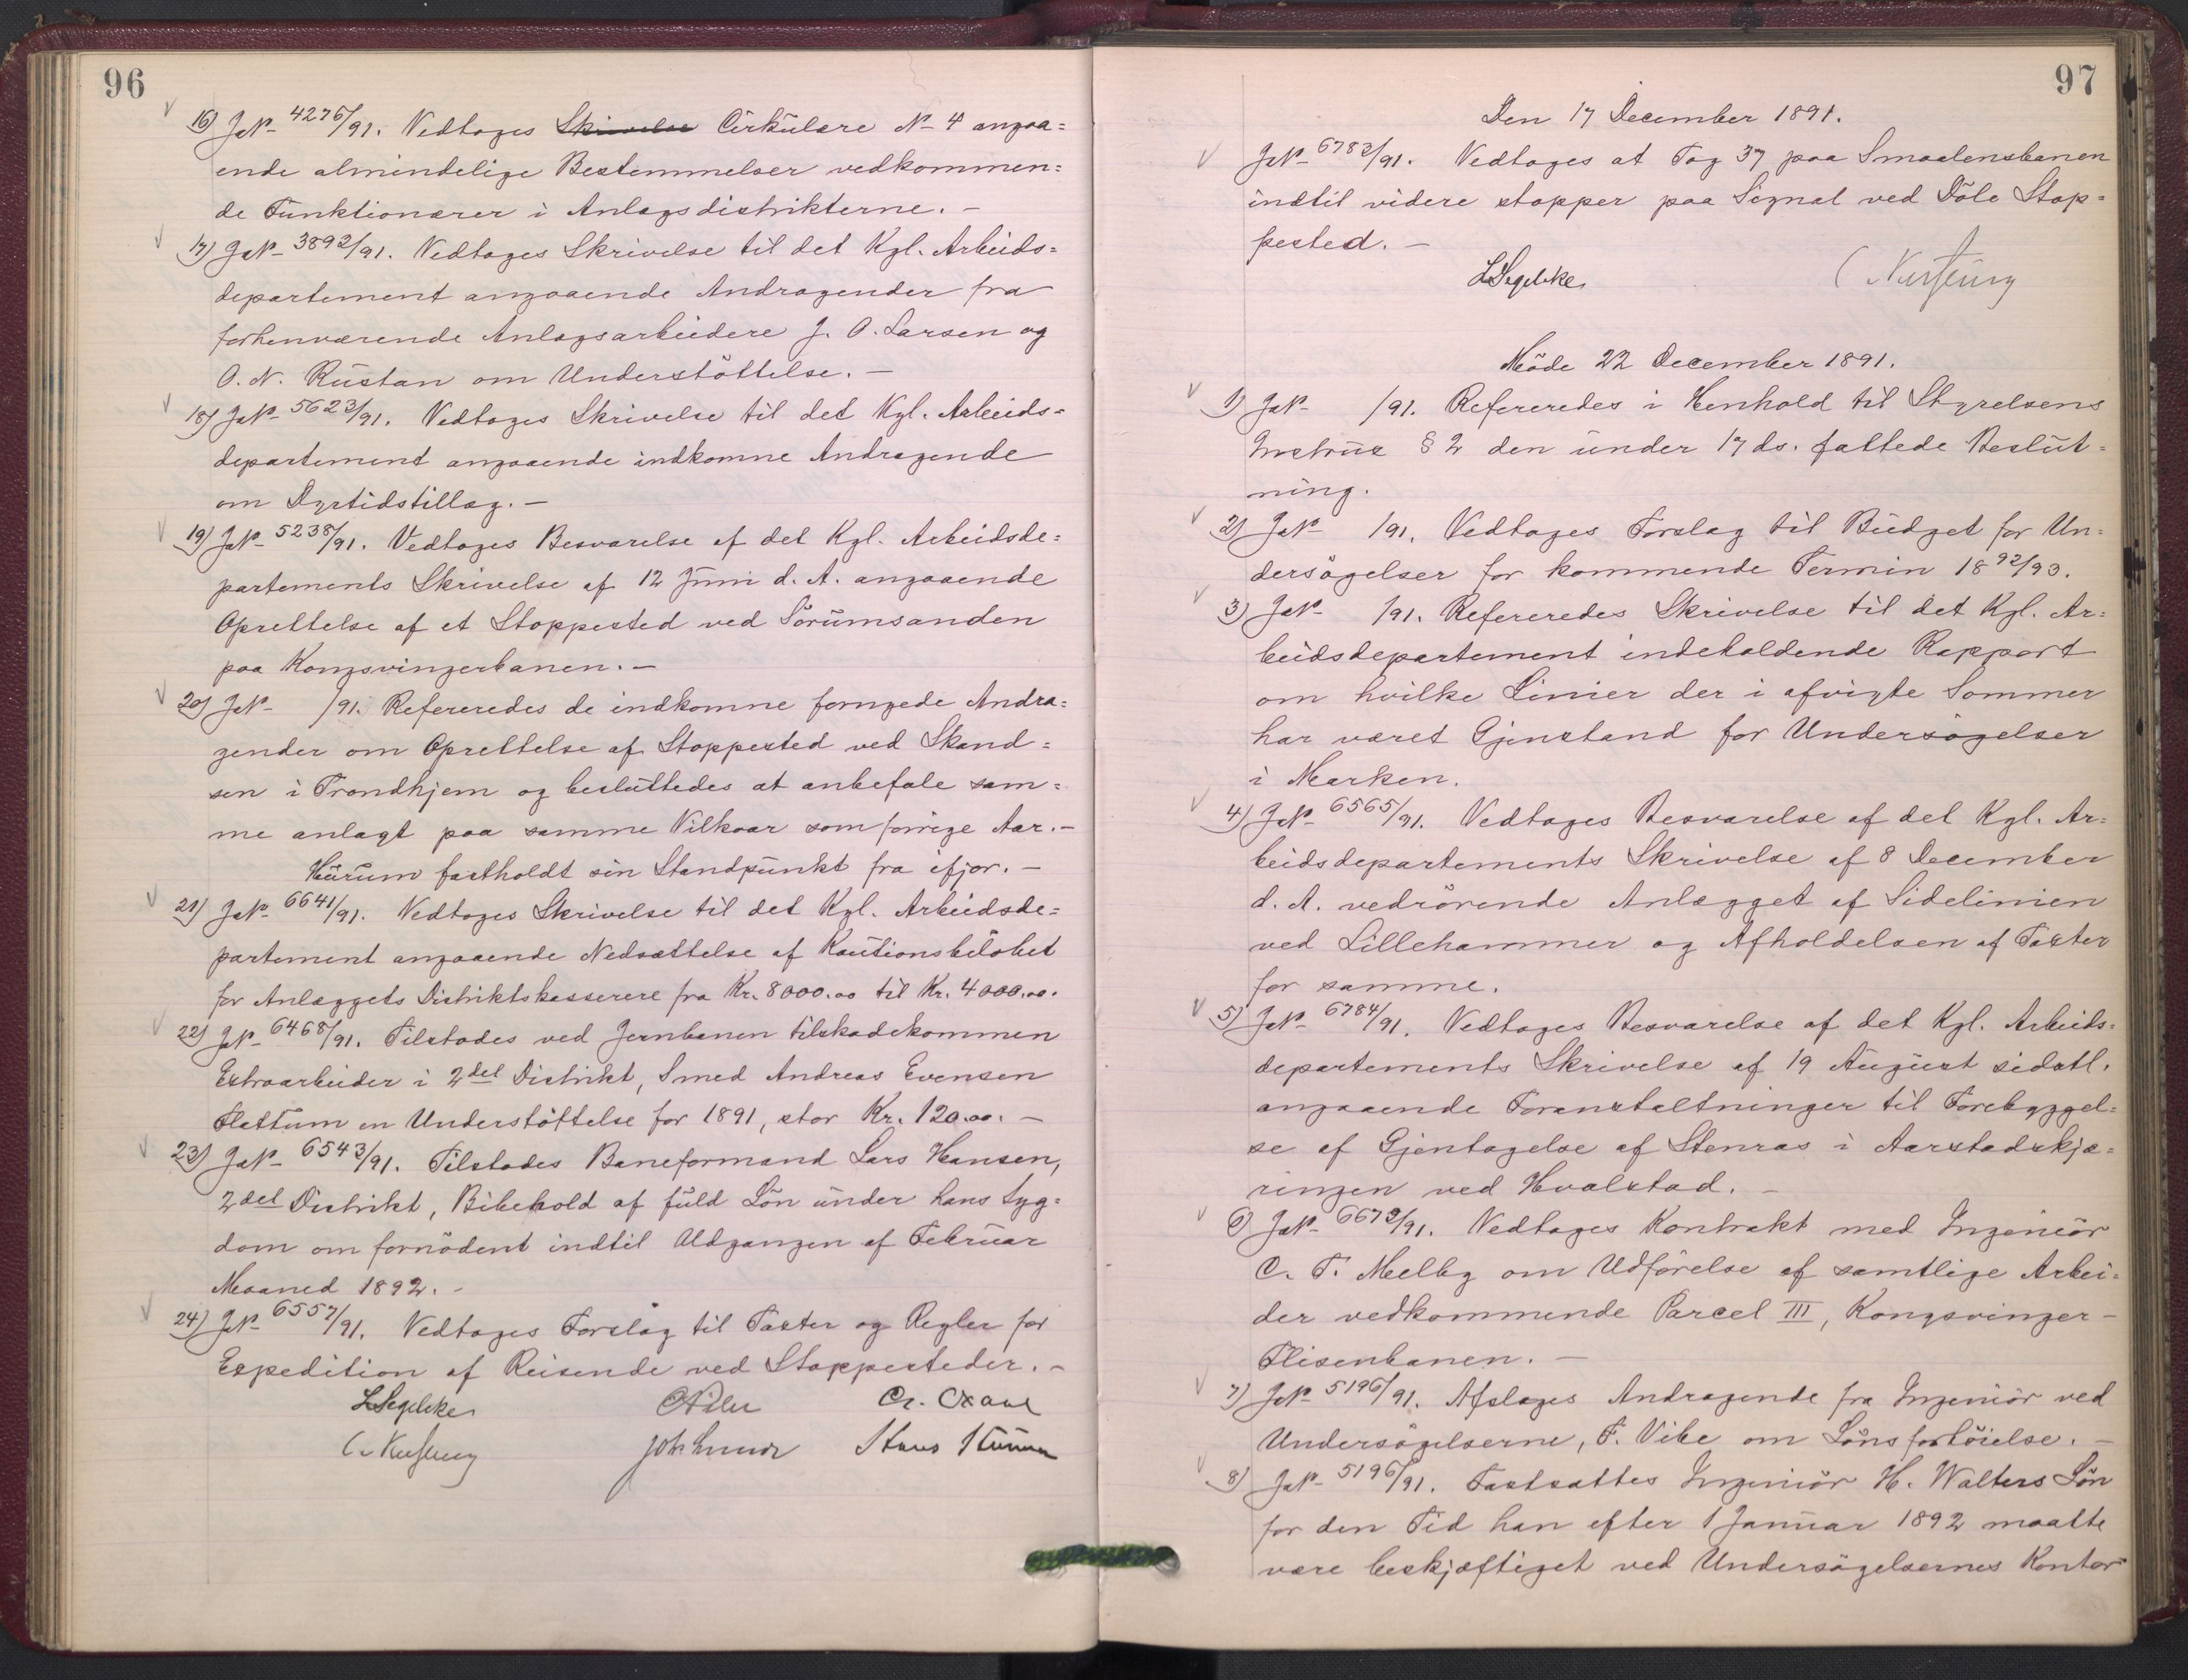 96
16) JN- 4276/91. Vedtoges Skrivelse Cirkulære N- 4 angaa=
ende almindelige Bestemmelser vedkommen=
de Funktionærer i Anlægsdistrikterne. -
17) JN- 3892/91. Vedtoges Skrivelse til det Kgl. Arbeids=
departement angaaende Andragender fra
forhenværende Anlægsarbeidere J. O. Larsen og
O. N. Rustan om Understöttelse. -
18) JN- 5623/91. Vedtoges Skrivelse til det Kgl. Arbeids=
departement angaaende indkomne Andragende
om Dyrtidstillæg. -
19) JN- 5238/91. Vedtoges Besvarelse af det Kgl. Arbeidsde=
partements Skrivelse af 12 Juni d. A. angaaende
Oprettelse af et Stoppested ved Sörumsanden
paa Kongsvingerbanen. -
20) JN- /91. Refereredes de indkomne fornyede Andra=
gender om Oprettelse af Stoppested ved Skand=
sen i Trondhjem og besluttedes at anbefale sam=
me anlagt paa samme Vilkaar som forrige Aar. -
Hürum fastholdt sin Standpunkt fra ifjor. -
21) JN- 6641/91. Vedtoges Skrivelse til det Kgl. Arbeidsde=
partement angaaende Nedsættelse af Kautionsbelöbet
for Anlæggets Distriktskasserere fra Kr. 8000.00 til Kr. 4000.00.
22) JN- 6468/91. Tilstodes ved Jernbanen tilskadekommen
Extraarbeider i 2det Distrikt, Smed Andreas Evensen
Flattum en Understöttelse for 1891, stor Kr. 120.00. -
23) JN- 6543/91. Tilstodes Baneformand Lars Hansen,
2det Distrikt, Bibehold af fuld Lön under hans Syg=
dom om fornödent indtil Udgangen af Februar
Maaned 1892. -
24) JN- 6557/91. Vedtoges Forslag til Taxter og Regler for
Expedition af Reisende ved Stoppesteder. -
LSegelcke
97
Den 17 December 1891.
JN- 6782/91. Vedtoges at Tog 37 paa Smaalensbanen
indtil videre stopper paa Signal ved Döle Stop=
pested. -
LSegelcke
Möde 22 December 1891.
1) JN- /91. Refereredes i Henhold til Styrelsens
Instrux § 2 den under 17 ds. fattede Beslut=
ning.
2) JN- /91. Vedtoges Forslag til Budget for Un=
dersögelser for kommende Termin 1892/93.
3) JN- /91. Refereredes Skrivelse til det Kgl. Ar=
beidsdepartement indeholdende Rapport
om hvilke Linier der i afvigte Sommer
har været Gjenstand for Undersögelser
i Marken.
4) JN- 6565/91. Vedtoges Besvarelse af det Kgl. Ar=
beidsdepartements Skrivelse af 8 December
d. A. vedrörende Anlægget af Sidelinien
ved Lillehammer og Afholdelsen af Taxter
for samme.
5) JN- 6784/91. Vedtoges Besvarelse af det Kgl. Arbeids=
departements Skrivelse af 19 August sidstl.
angaaende Foranstaltninger til Forebyggel=
se af Gjentagelse af Stenras i Aarstadskjæ=
ringen ved Hvalstad. -
6) JN- 6672/91. Vedtoges Kontrakt med Ingeniör
C. F. Melby om Udförelse af samtlige Arbei=
der vedkommende Parcel III, Kongsvinger-
Flisenbanen. -
7) JN- 5196/91. Afsloges Andragende fra Ingeniör ved
Undersögelserne, F. Vibe om Lönsforhöielse. -
8) JN- 5196/91. Fastsattes Ingeniör H. Walters Lön
for den Tid han efter 1 Januar 1892 maatte
være beskjæftiget ved Undersögelsernes Kontor